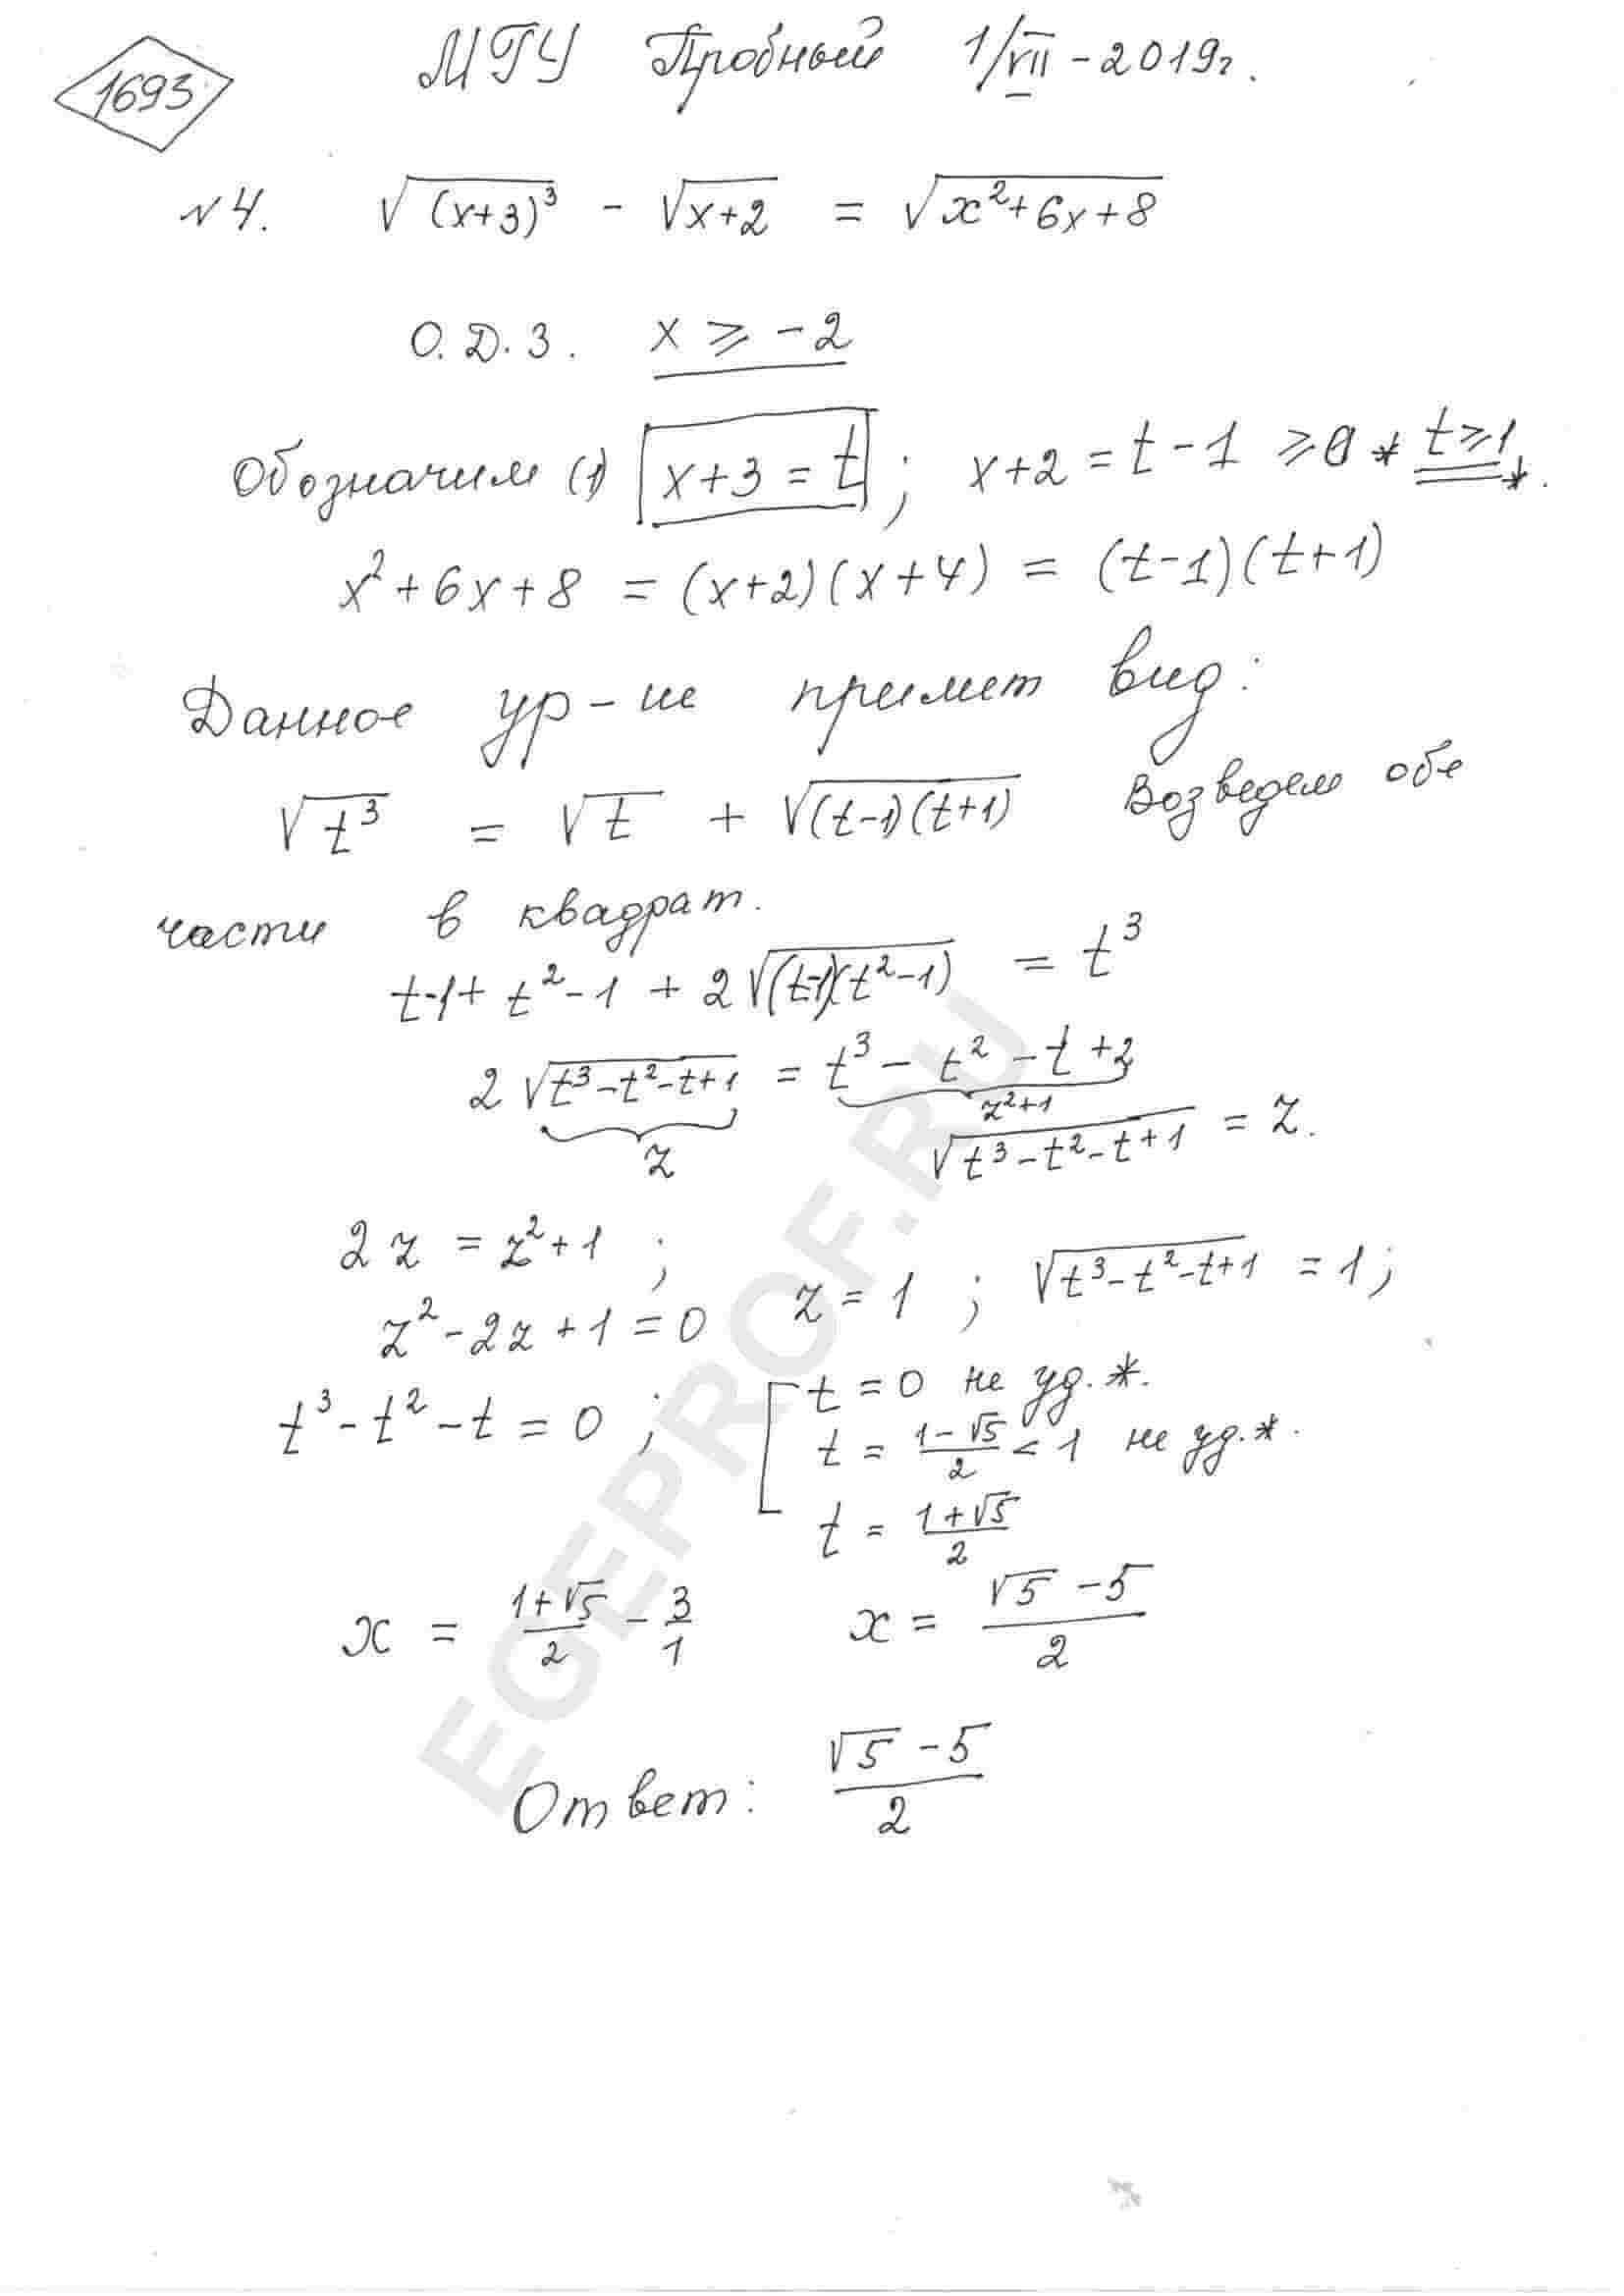 1693
МГУ Пробный 1/VII - 2019г.
№4. √(x+3)³ - √x+2 = √x²+6x+8
О.Д.З. x ⩾ -2
Обозначим (1) x+3 = t ; x+2 = t-1 ⩾ 0 * t⩾1 *.
x²+6x+8 = (x+2)(x+4) = (t-1)(t+1)
Данное ур-ие примет вид:
√t³ = √t + √(t-1)(t+1) Возведем обе
части в квадрат.
t-1+ t²-1 + 2√(t-1)(t²-1) = t³
2√t³-t²-t+1 = t³ - t² - t +2
z z²+1 √t³-t²-t+1 = z.
2z = z²+1 ;
z²-2z+1=0 z = 1 ; √t³-t²-t+1 = 1 ;
t³-t²-t = 0 ; t = 0 не уд.*.
t = (1-√5)/2 < 1 не уд.*.
t = (1+√5)/2
x = (1+√5)/2 - 3/1 x = (√5-5)/2
Ответ: (√5-5)/2
EGEPROF.RU